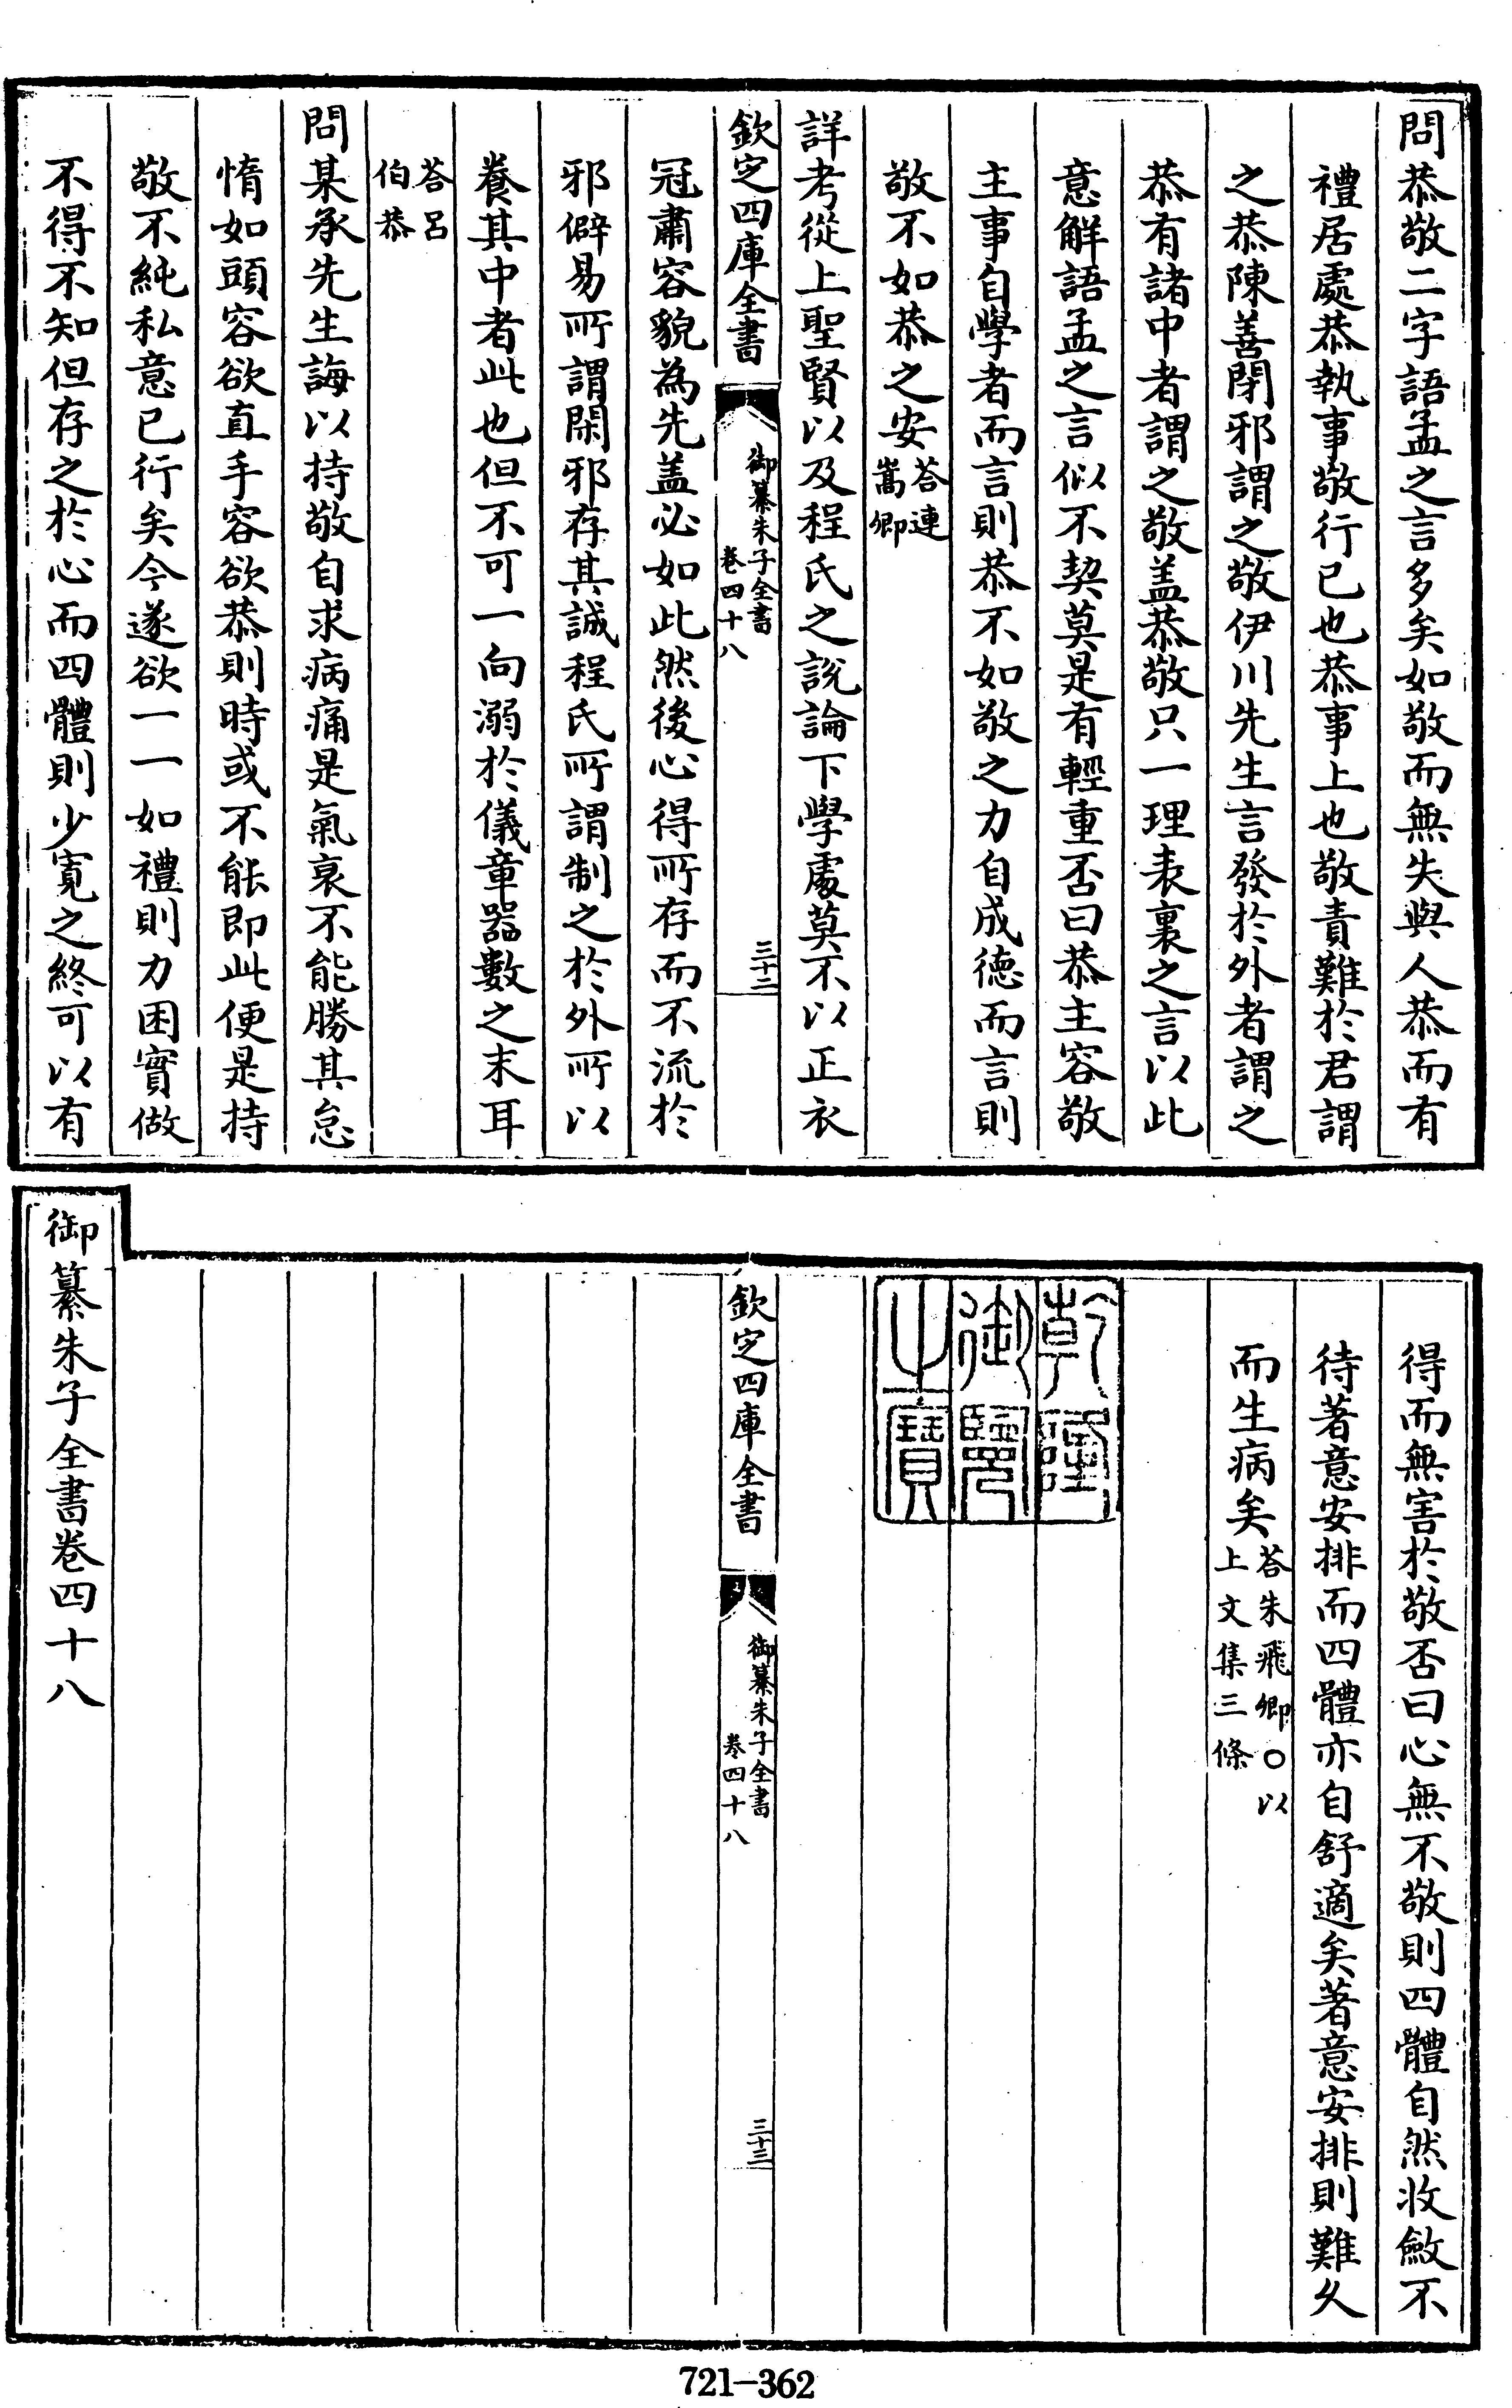 問恭敬二字語孟之言多矣如敬而無失與人恭而有
禮居處恭執事敬行已也恭事上也敬責難於君謂
之恭陳善閉邪謂之敬伊川先生言發於外者謂之
恭有諸中者謂之敬盖恭敬只一理表裏之言以此
意解語孟之言似不契莫是有輕重否曰恭主容敬
主事自學者而言則恭不如敬之力自成徳而言則
敬不如恭之安答連嵩卿
詳考從上聖賢以及程氏之說論下學處莫不以正衣
欽定四庫全書
御纂朱子全書
卷四十八
三十二
冠肅容貌為先盖必如此然後心得所存而不流於
邪僻易所謂閑邪存其誠程氏所謂制之於外所以
養其中者此也但不可一向溺於儀章器數之末耳
答呂
伯恭
問某承先生誨以持敬自求病痛是氣衰不能勝其怠
惰如頭容欲直手容欲恭則時或不能即此便是持
敬不純私意已行矣今遂欲一一如禮則力困實做
不得不知但存之於心而四體則少寬之終可以有
得而無害於敬否曰心無不敬則四體自然收斂不
待著意安排而四體亦自舒適矣著意安排則難久
而生病矣答朱飛卿〇以上文集三條
乾隆
御覽
之寶
欽定四庫全書
御纂朱子全書
卷四十八
三十三
御纂朱子全書卷四十八
721-362